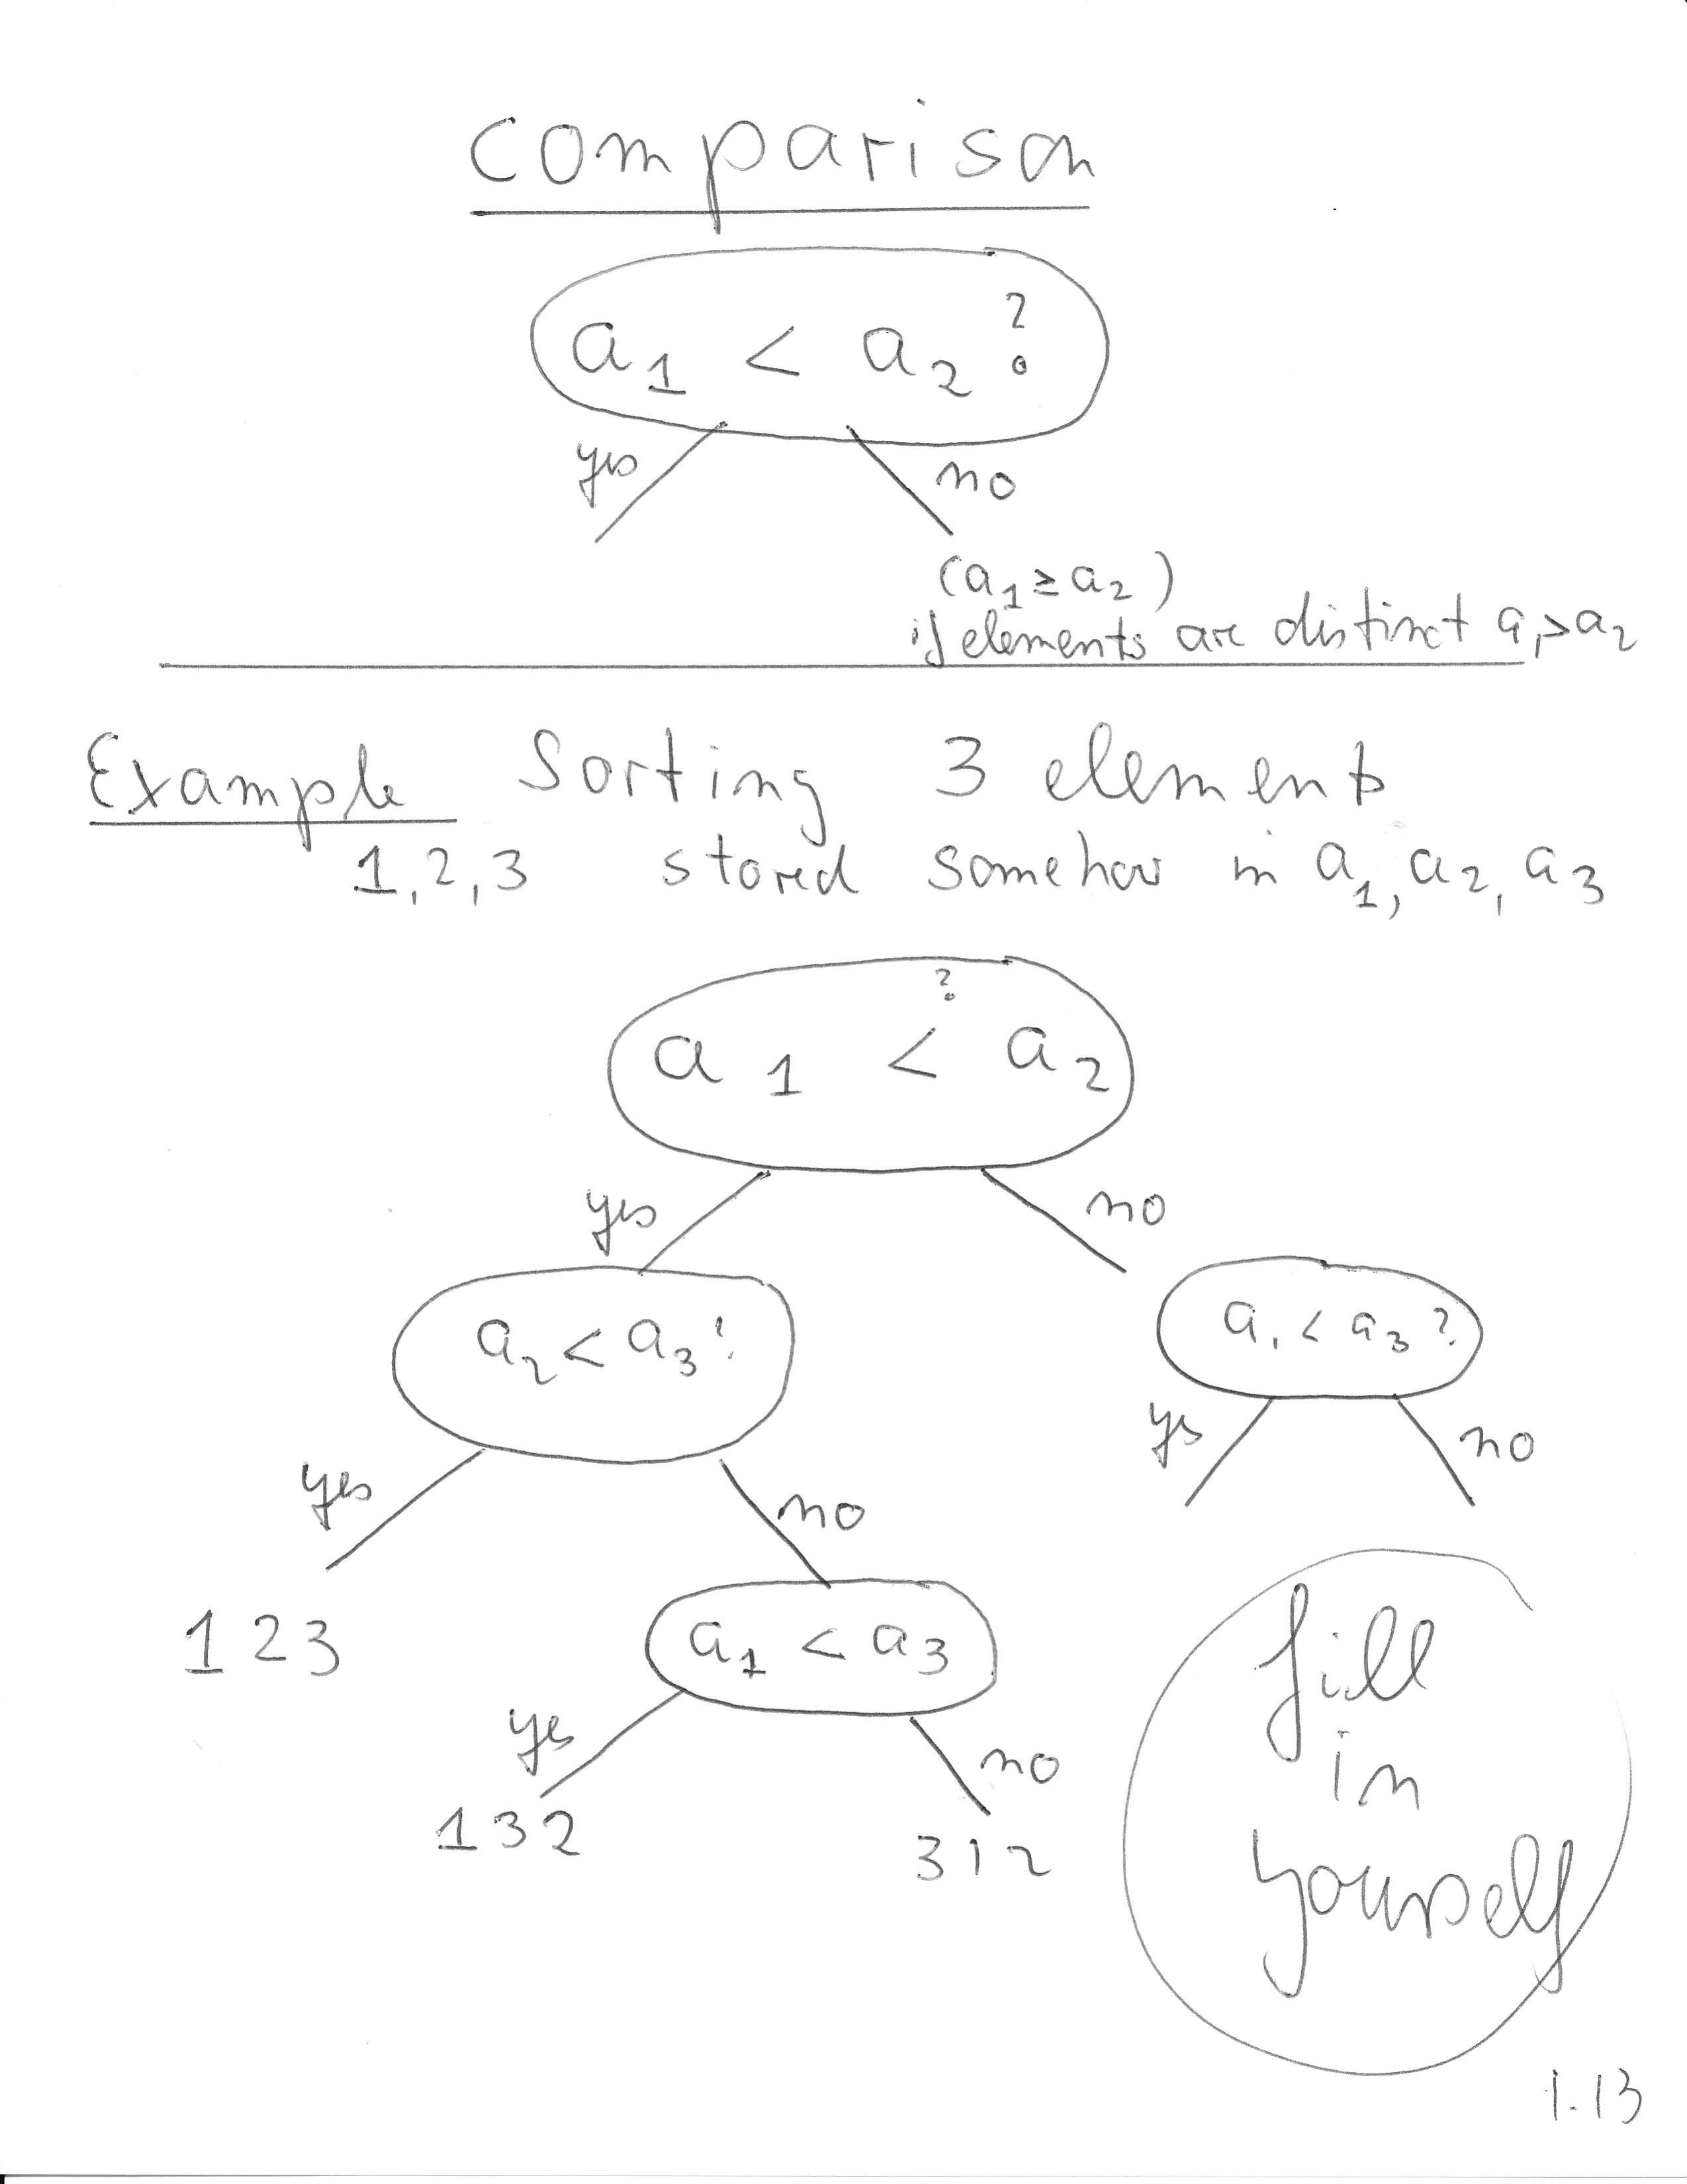 comparison
a1 < a2 ?
yes no
(a1 ≥ a2)
if elements are distinct a1 > a2
Example Sorting 3 elements
1,2,3 stored somehow in a1, a2, a3
?
a1 < a2
yes no
a2 < a3 ?
a1 < a3 ?
yes no
yes no
1 2 3
a1 < a3
yes no
1 3 2
3 1 2
fill
in
yourself
1.13